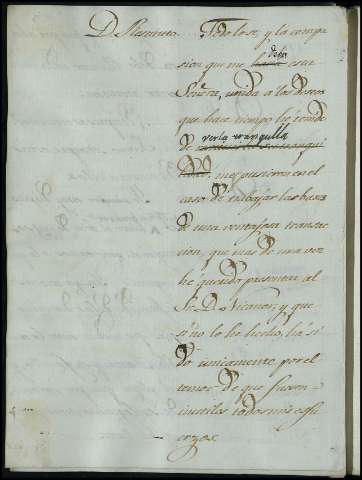 D. Clemente. Todo lo se, y la compa
sion que me debe esa
Señora, unida a los deseos
que hace tiempo he tenido
de verla tranquila
me pusieron en el
caso de trabajar las bases
de una ventajosa transac
cion, que mas de una vez
he querido presentar al
Sr. D. Nicanor; y que
si no lo he hecho, ha si
do unicamente por el
temor de que fuesen
inutiles todos mis esfu
erzos.